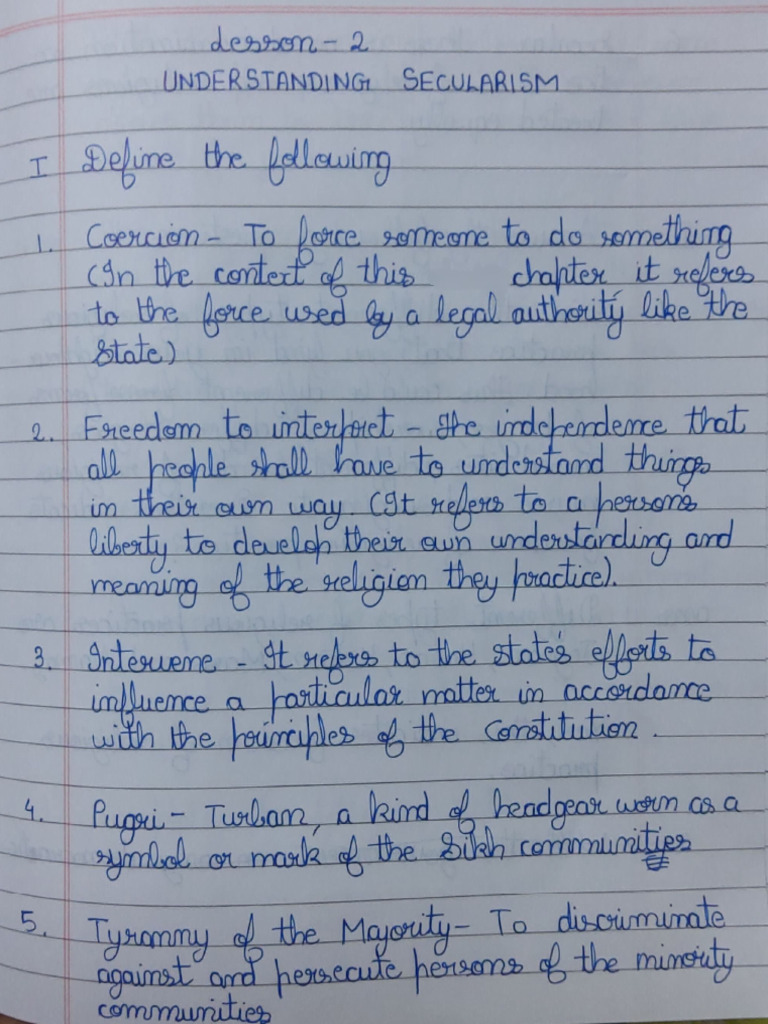 Lesson - 2
UNDERSTANDING SECULARISM
I Define the following
1. Coercion - To force someone to do something
(In the context of this chapter it refers
to the force used by a legal authority like the
State)
2. Freedom to interpret - The independence that
all people shall have to understand things
in their own way. (It refers to a person's
liberty to develop their own understanding and
meaning of the religion they practice).
3. Intervene - It refers to the state's efforts to
influence a particular matter in accordance
with the principles of the Constitution.
4. Pugri - Turban, a kind of headgear worn as a
symbol or mark of the Sikh communities
5. Tyranny of the Majority - To discriminate
against and persecute persons of the minority
communities